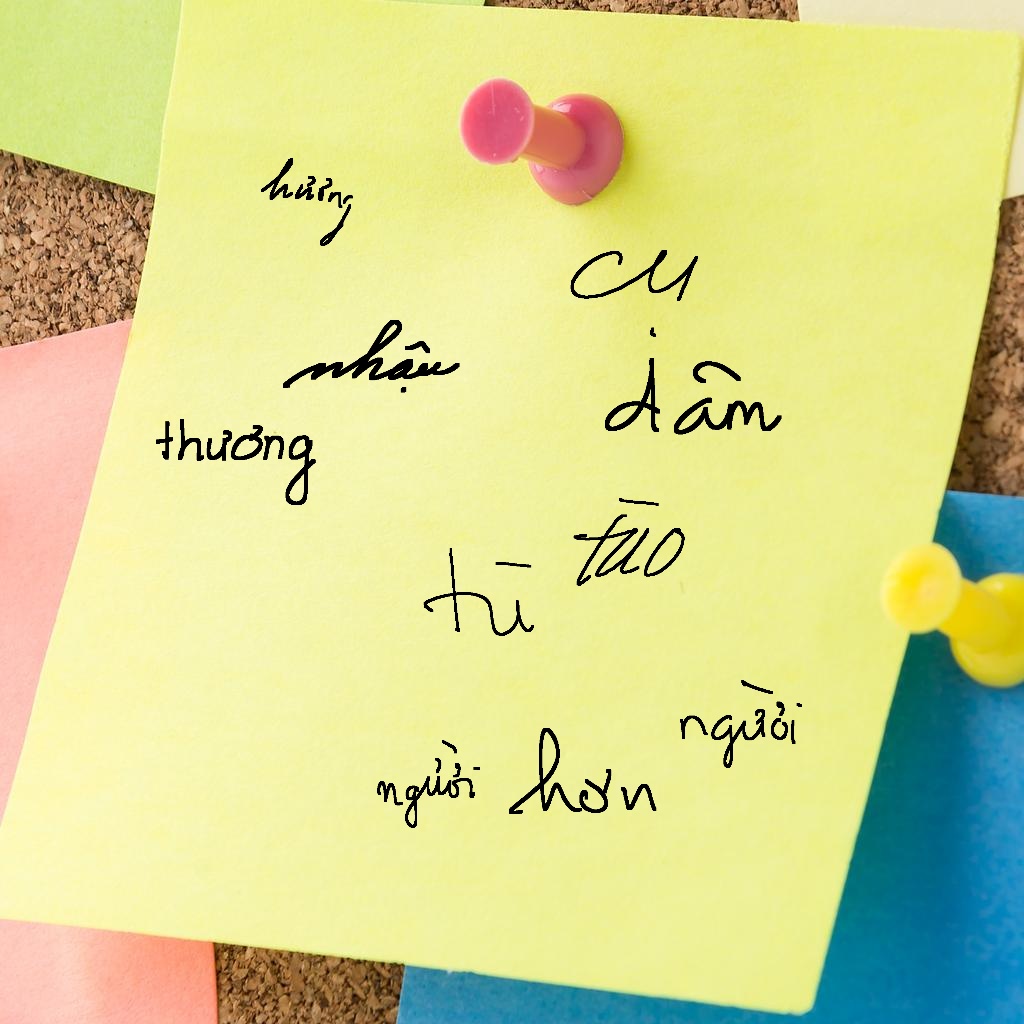 hương
cụ
nhậu
dâm
thương
tào
tù
người
người hơn